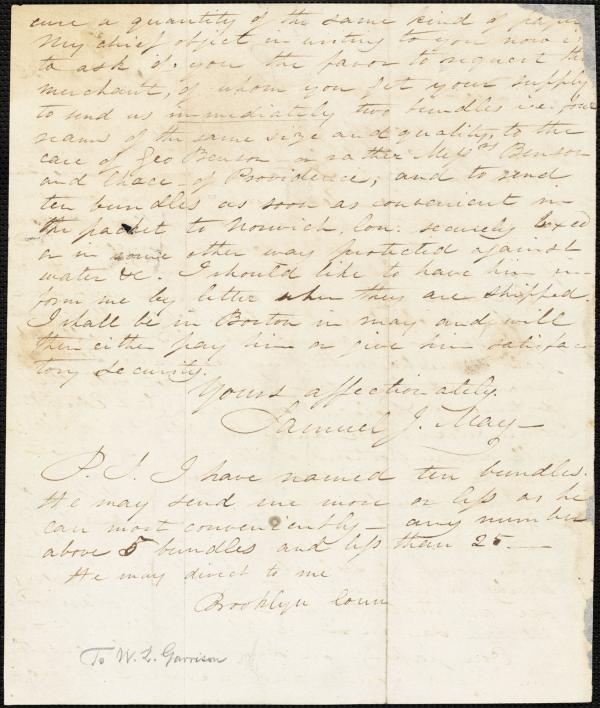 cure a quantity of the same kind of paper
My chief object in writing to you now is
to ask of you the favor to request the
merchant, of whom you get your supply
to send us immediately two bundles i.e. four
reams of the same size and quality, to the
care of Geo Benson or rather Messrs Benson
and Chace of Providence; and to send
ten bundles as soon as convenient in
the packet to Norwich, Con. securely boxed
or in some other way protected against
water &c. I should like to have him in-
form me by letter when they are shipped.
I shall be in Boston in May and will
then either pay him or give him satisfac-
tory security.
Yours affectionately.
Samuel J. May
P.S. I have named ten bundles.
He may send me more or less as he
can most conveniently — any number
above 5 bundles and less than 25.—
He may direct to me
Brooklyn Conn
To W. L. Garrison